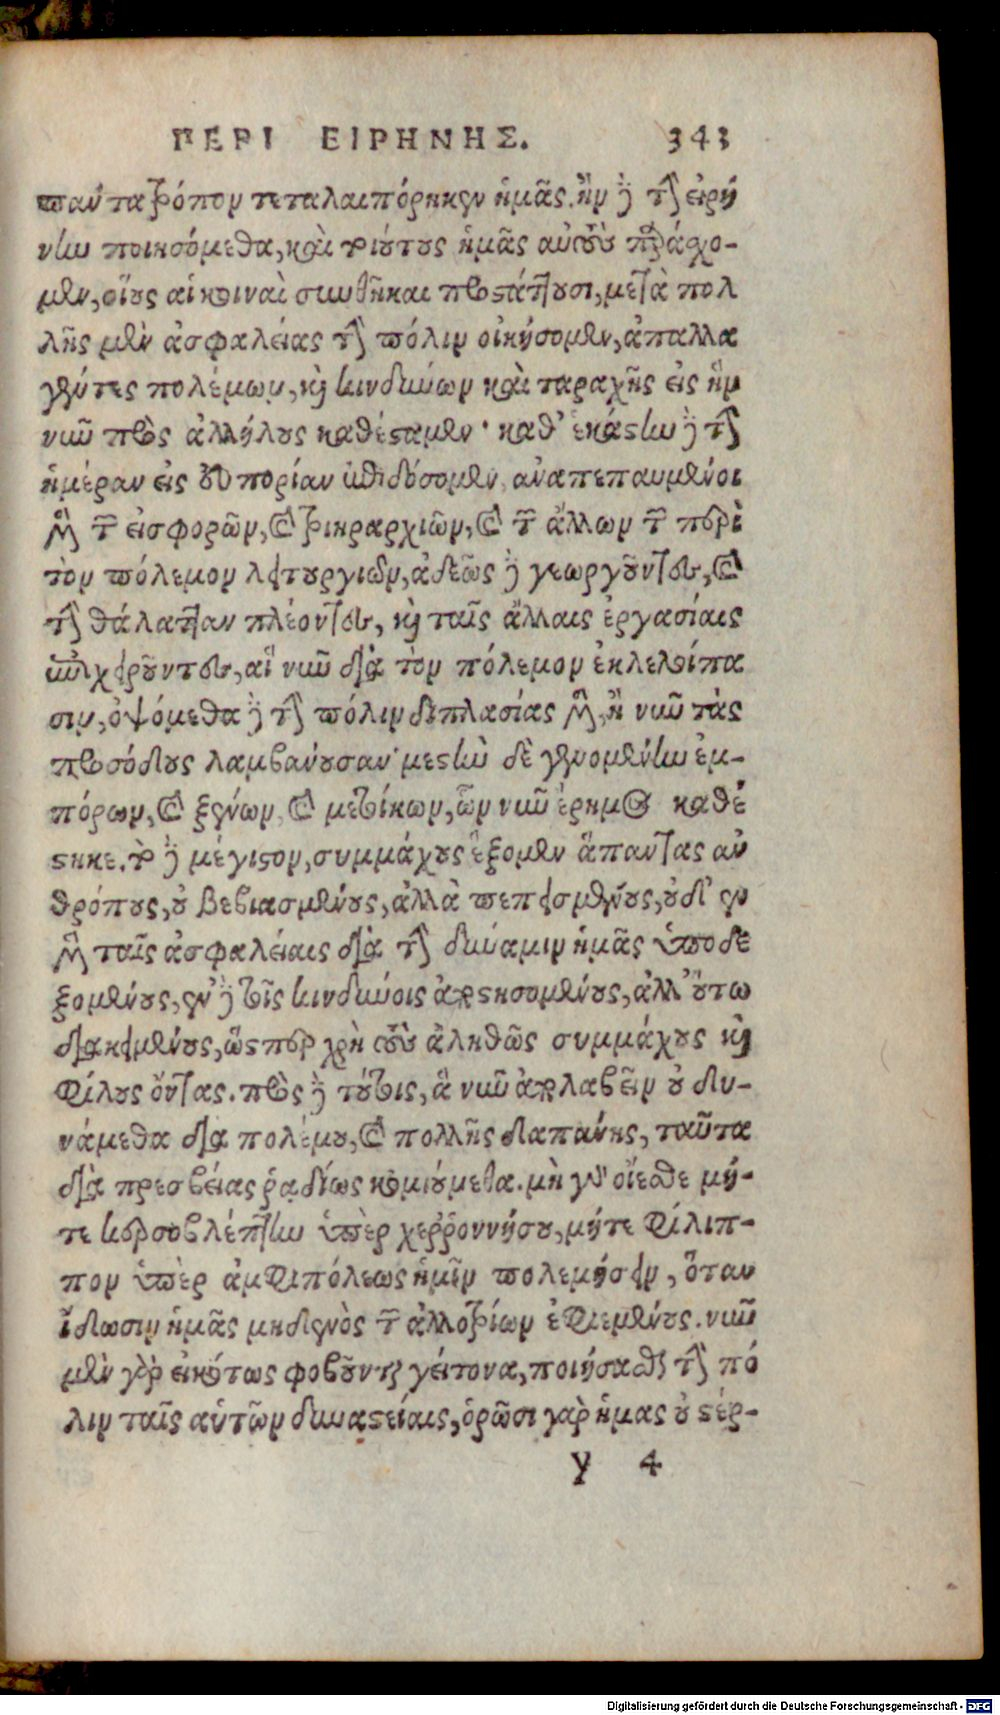 ΠΕΡΙ ΕΙΡΗΝΗΣ. 343
πάντα τρόπον τεταλαιπόρηκεν ἡμᾶς. ἢν δὲ τὴν εἰρή
νην ποιησόμεθα, καὶ τοιούτους ἡμᾶς αὐτοὺς παράσχο-
μεν, οἵους αἱ κοιναὶ συνθῆκαι προστάττουσι, μετὰ πολ
λῆς μὲν ἀσφαλείας τὴν πόλιν οἰκήσομεν, ἀπαλλα
γέντες πολέμων, καὶ κινδύνων καὶ ταραχῆς εἰς ἣν
νῦν πρὸς ἀλλήλους καθέσταμεν· καθ' ἑκάστην δὲ τὴν
ἡμέραν εἰς εὐπορίαν ἐπιδώσομεν, ἀναπεπαυμένοι
μὲν τῶν εἰσφορῶν, καὶ τριηραρχιῶν, καὶ τῶν ἄλλων τῶν περὶ
τὸν πόλεμον λειτουργιῶν, ἀδεῶς δὲ γεωργοῦντες, καὶ
τὴν θάλατταν πλέοντες, καὶ ταῖς ἄλλαις ἐργασίαις
ἐπιχειροῦντες, αἳ νῦν διὰ τὸν πόλεμον ἐκλελοίπα
σιν, ὀψόμεθα δὲ τὴν πόλιν διπλασίας μὲν, ἢ νῦν τὰς
προσόδους λαμβάνουσαν· μεστὴν δὲ γενομένην ἐμ-
πόρων, καὶ ξένων, καὶ μετοίκων, ὧν νῦν ἔρημος καθέ
στηκε. τὸ δὲ μέγιστον, συμμάχους ἕξομεν ἅπαντας ἀν
θρόπους, οὐ βεβιασμένους, ἀλλὰ πεπεισμένους, οὐδ' ἐν
μὲν ταῖς ἀσφαλείαις διὰ τὴν δύναμιν ἡμᾶς ὑποδε
ξομένους, ἐν δὲ τοῖς κινδύνοις ἀποστησομένους, ἀλλ' οὕτω
διακειμένους, ὥσπερ χρὴ τοὺς ἀληθῶς συμμάχους καὶ
φίλους ὄντας. πρὸς δὲ τούτοις, ἃ νῦν ἀπολαβεῖν οὐ δυ-
νάμεθα διὰ πολέμου, καὶ πολλῆς δαπάνης, ταῦτα
διὰ πρεσβείας ῥαδίως κομιούμεθα. μὴ γὰρ οἴεσθε μή-
τε Κερσοβλέπτην ὑπὲρ χερρὁοννήσου, μήτε Φίλιπ-
πον ὑπὲρ ἀμφιπόλεως ἡμῖν πολεμήσειν, ὅταν
ἴδωσιν ἡμᾶς μηδενὸς τῶν ἀλλοτρίων ἐφιεμένους. νῦν
μὲν γὰρ εἰκότως φοβοῦνται γείτονα, ποιήσασθαι τὴν πό
λιν ταῖς αὑτῶν δυναστείαις, ὁρῶσι γὰρ ἡμας οὐ στέρ-
y 4
Digitalisierung gefördert durch die Deutsche Forschungsgemeinschaft - DFG